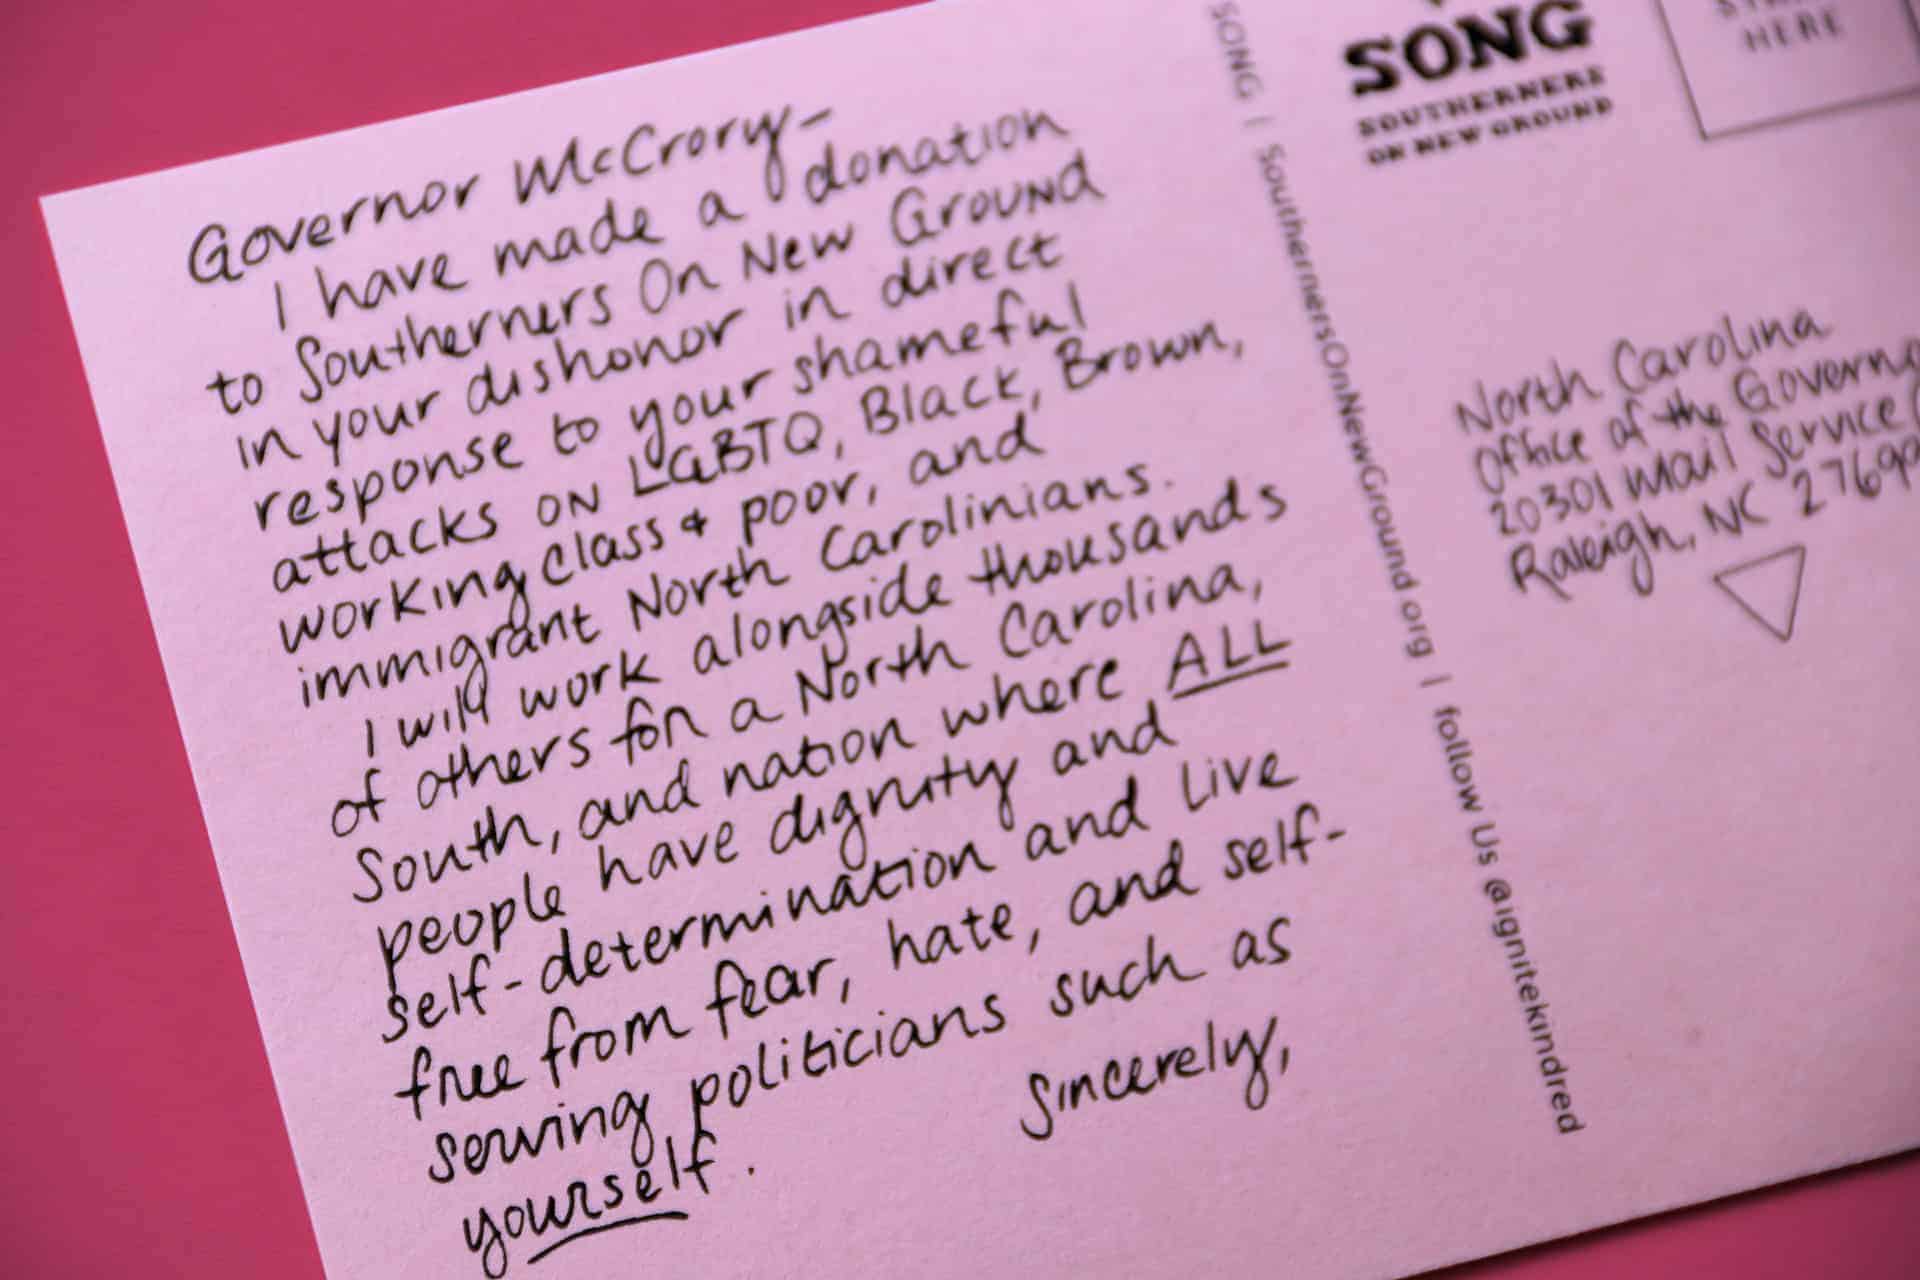 Governor McCrory-
I have made a donation
to Southerners On New Ground
in your dishonor in direct
response to your shameful
attacks on LGBTQ, Black, Brown,
working class & poor, and
immigrant North Carolinians.
I will work alongside thousands
of others for a North Carolina,
South, and nation where ALL
people have dignity and
self-determination and live
free from fear, hate, and self-
serving politicians such as
yourself.
Sincerely,
SONG | SouthernersOnNewGround.org | follow Us @ignitekindred
SONG
SOUTHERNERS
ON NEW GROUND
HERE
North Carolina
Office of the
20301 Mail Service
Raleigh, NC